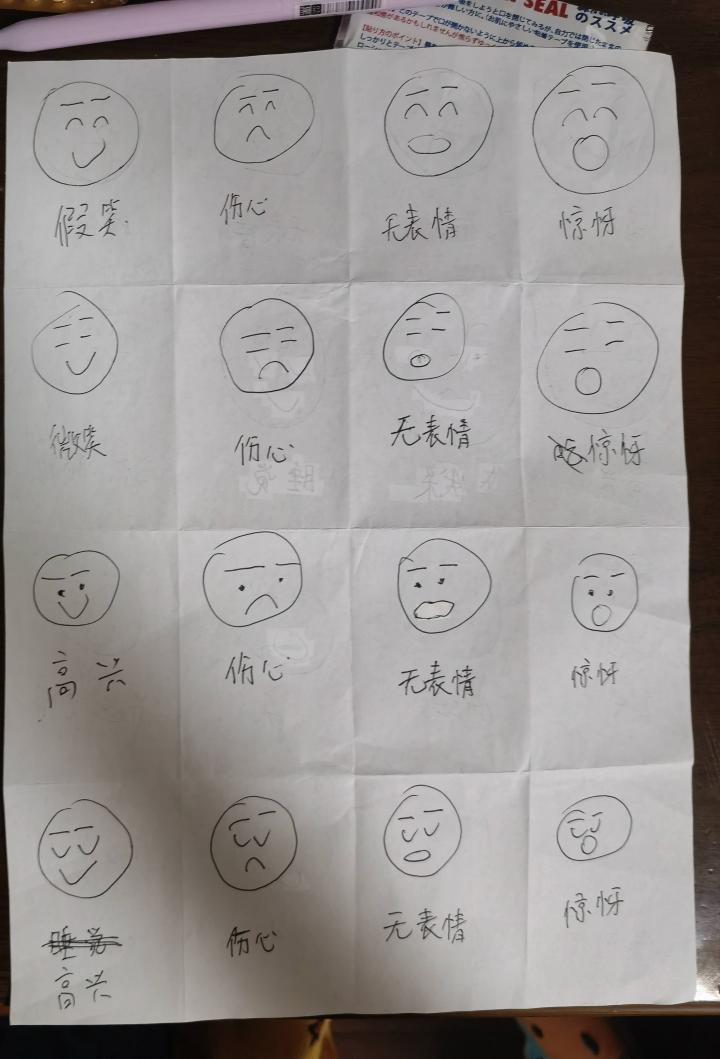 SEAL
のススメ
【貼り方のポイント】
假笑
伤心
无表情
惊讶
微笑
伤心
无表情
惊讶
高兴
伤心
无表情
惊讶
睡觉
高兴
伤心
无表情
惊讶